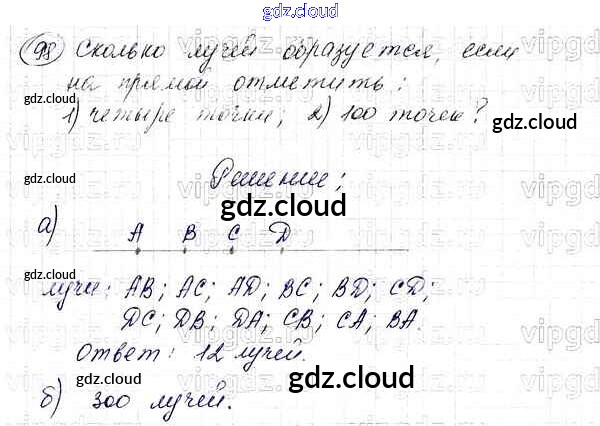 gdz.cloud
98 Сколько лучей образуется, если
на прямой отметить:
gdz.cloud
1) четыре точки; 2) 100 точек?
gdz.cloud
gdz.cloud
Решение:
gdz.cloud
а) A B C D
gdz.cloud
лучи: AB; AC; AD; BC; BD; CD;
DC; DB; DA; CB; CA; BA.
gdz.cloud
Ответ: 12 лучей.
gdz.cloud
gdz.cloud
б) 300 лучей.